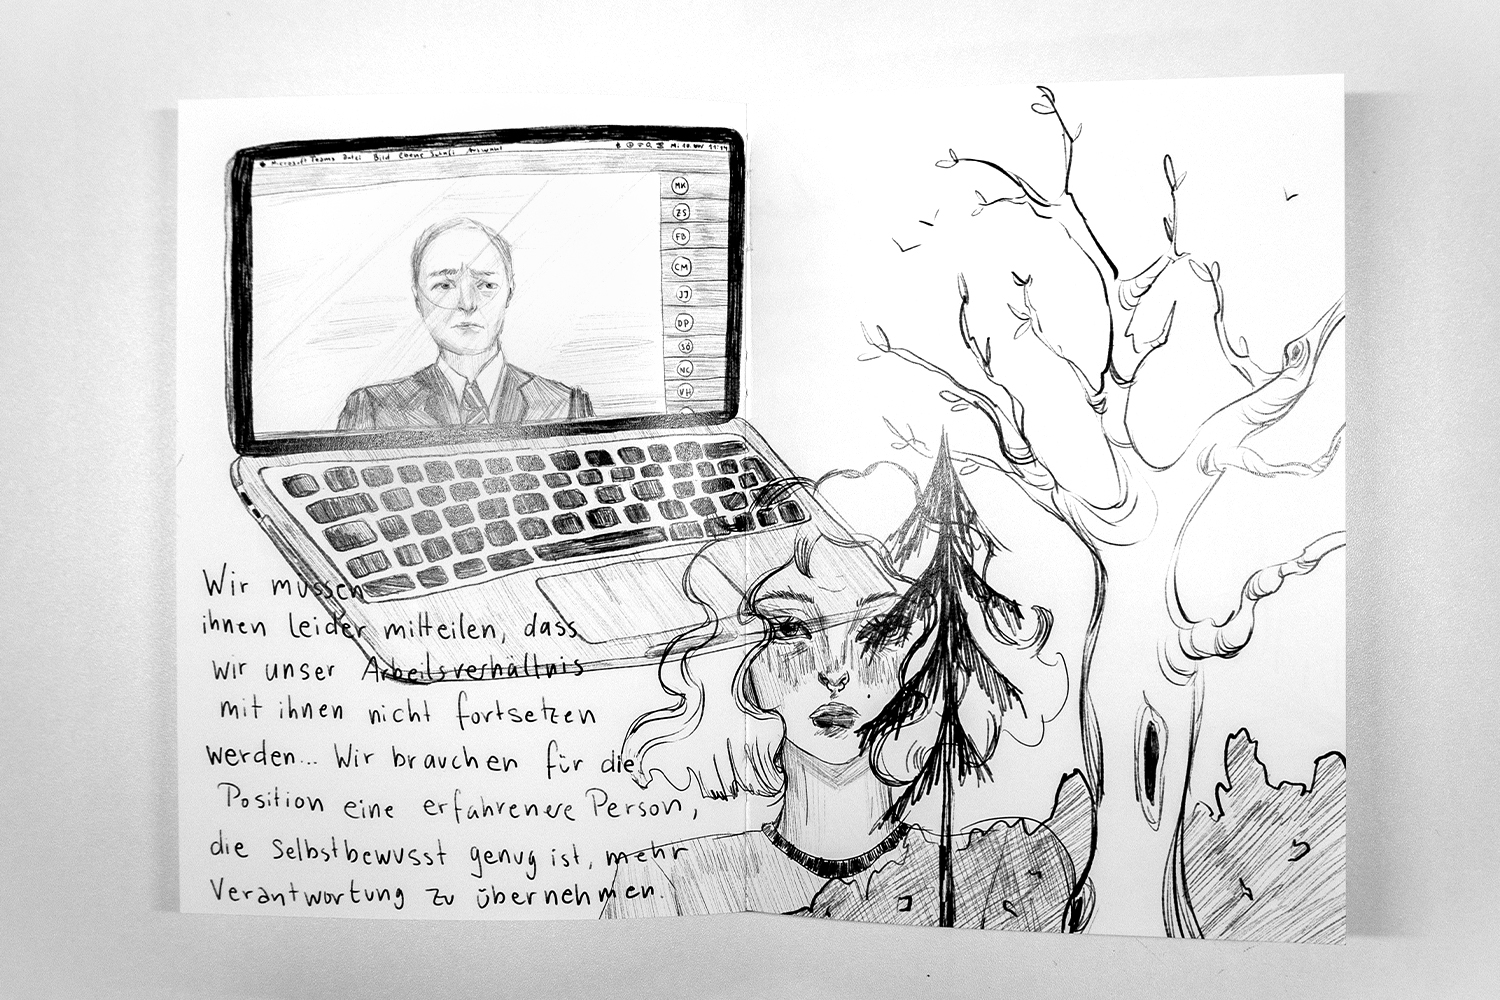 Microsoft Teams Datei Bild Ebene Schrift Auswahl
MK
ZS
FB
CM
JJ
DP
SÖ
NC
VH
Wir müssen
ihnen leider mitteilen, dass
wir unser Arbeitsverhältnis
mit ihnen nicht fortsetzen
werden... Wir brauchen für die
Position eine erfahrenere Person,
die Selbstbewusst genug ist, mehr
Verantwortung zu übernehmen.